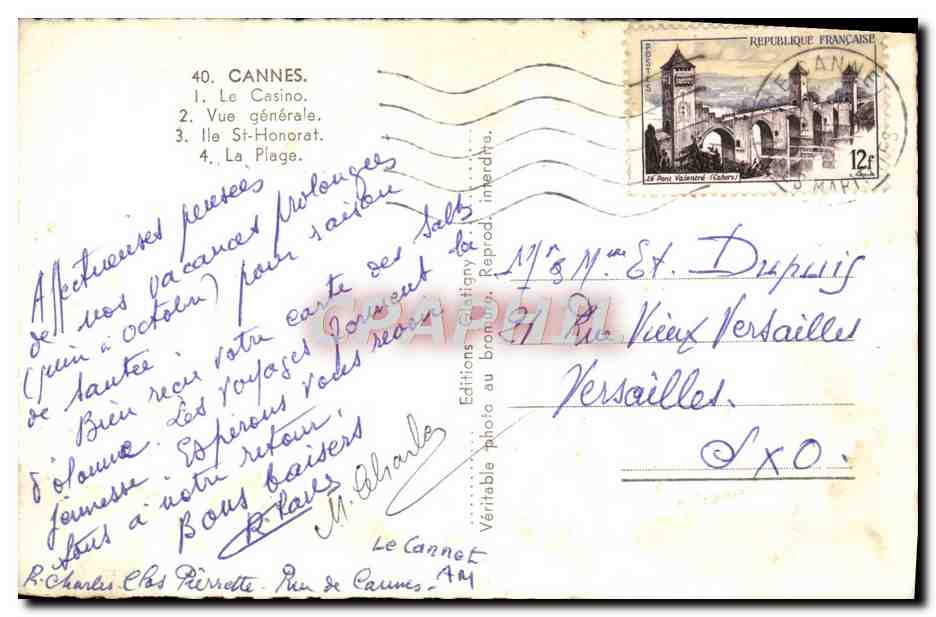 40. CANNES.
1. Le Casino.
2. Vue générale.
3. Ile St-Honorat.
4. La Plage.
Affectueuses pensées
de nos vacances prolongées
(juin à octobre) pour raison
de santée
Bien reçu votre carte des Sables
d'olonne. Les voyages forment la
jeunesse. Espérons vous revoir
tous à notre retour.
Bons baisers
M. Charles
Le Cannet
AM
R. Charles. Clos Pierrette. Rue de Cannes.
Editions Gilletta
Véritable photo au bromure. Reprod. interdite.
REPUBLIQUE FRANÇAISE
POSTES
LE Pont Valentré (Cahors)
12f
CANNES
Mr & Mme Et. Dupuis
91 Rue Vieux Versailles
Versailles.
S x O.
CPAPHIL